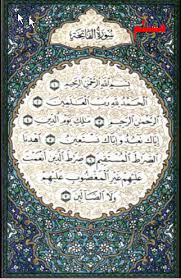 معلم
سورة الفاتحة
بسم الله الرحمن الرحيم ١
الحمد لله رب العالمين ٢
الرحمن الرحيم ٣ مالك يوم الدين ٤
إياك نعبد وإياك نستعين ٥ اهدنا
الصراط المستقيم ٦ صراط الذين أنعمت
عليهم غير المغضوب عليهم
ولا الضالين ٧